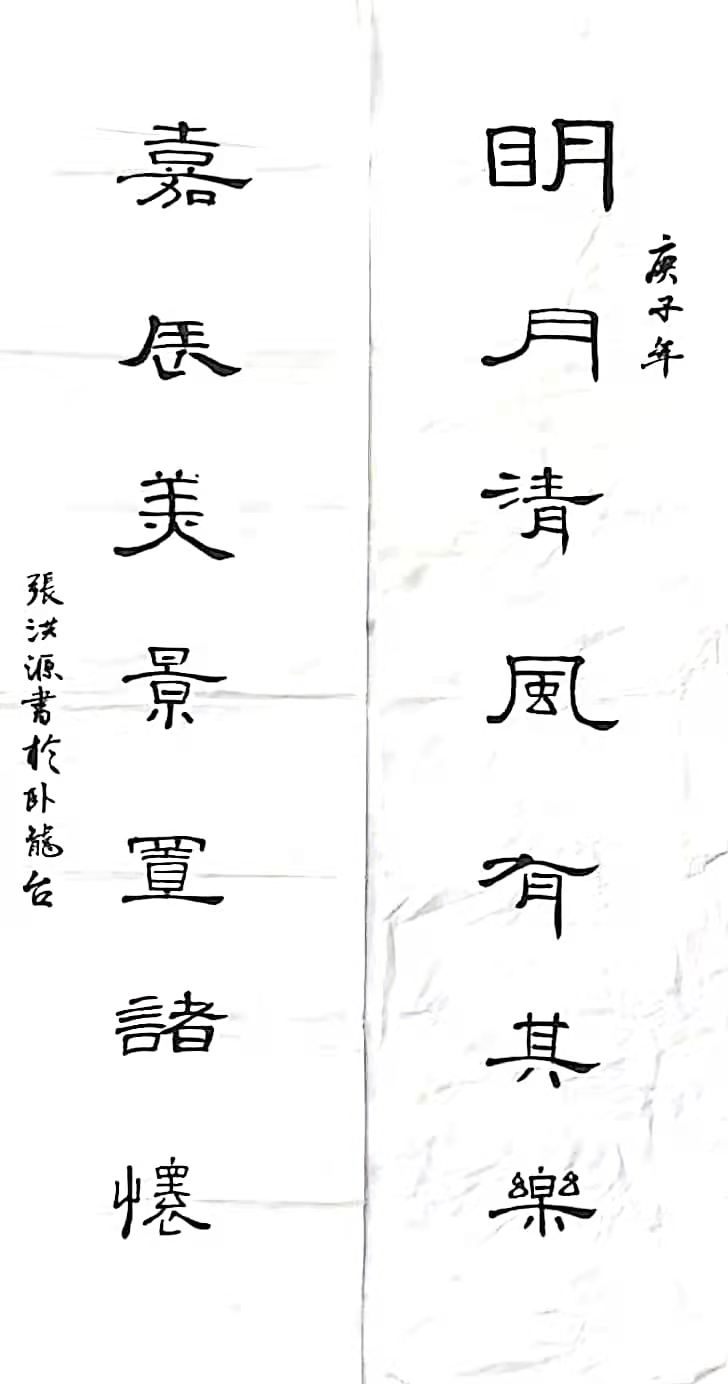 庚子年
明月清風有其樂
嘉辰美景置諸懷
張洪源書於卧龍台